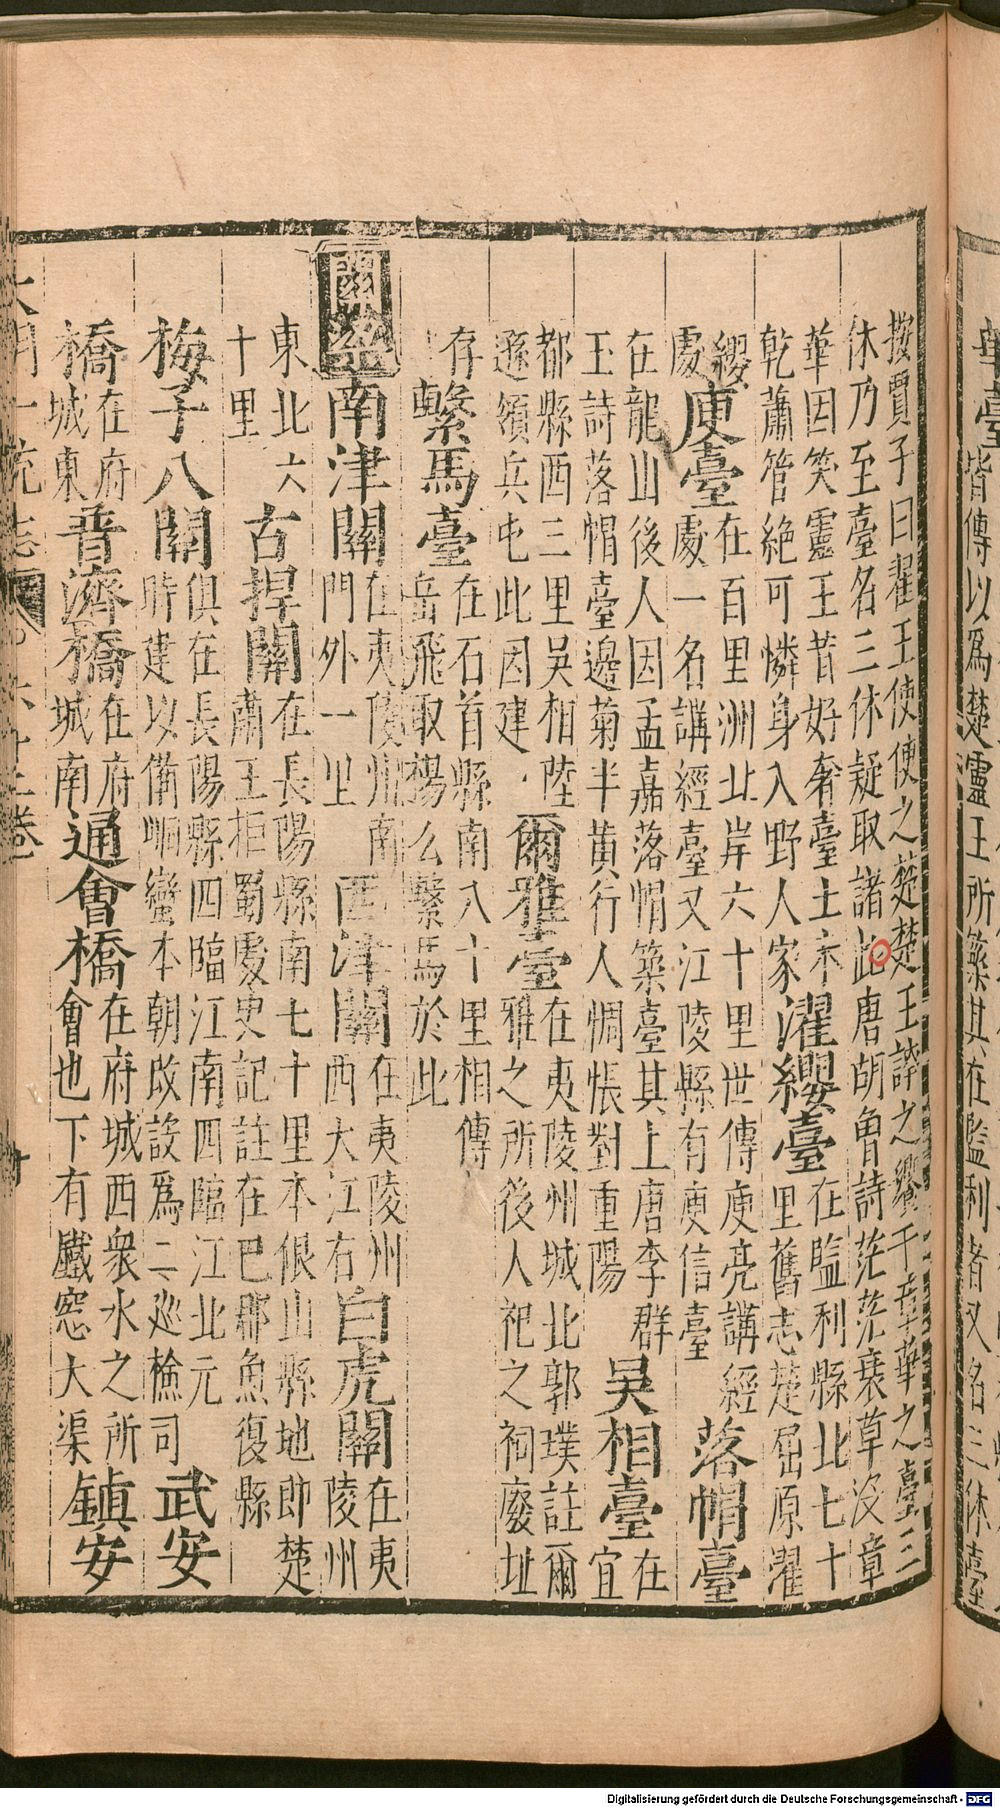 華臺皆傳以爲楚靈王所築其在監利者又名三休臺
按賈子曰翟王使使之楚楚王誇之饗于章華之臺三
休乃至臺名三休疑取諸此唐胡曾詩茫茫衰草沒章
華因笑靈王昔好奢臺土未
乾蕭管絶可憐身入野人家
濯纓臺
在監利縣北七十
里舊志楚屈原濯
纓
處
庾臺
在百里洲北岸六十里世傳庾亮講經
處一名講經臺又江陵縣有庾信臺
落帽臺
在龍山後人因孟嘉落帽築臺其上唐李群
玉詩落帽臺邊菊半黃行人惆悵對重陽
吳相臺
在
宜
都縣西三里吳相陸
遜領兵屯此因建
爾雅臺
在夷陵州城北郭璞註爾
雅之所後人祀之祠廢址
存
繫馬臺
在石首縣南八十里相傳
岳飛取楊么繫馬於此
關梁
南津關
在夷陵州南
門外一里
西津關
在夷陵州
西大江右
白虎關
在夷
陵州
東北六
十里
古捍關
在長陽縣南七十里本佷山縣地即楚
肅王拒蜀處史記註在巴郡魚復縣
梅子八關
俱在長陽縣四臨江南四臨江北元
時建以備峒蠻本朝改設爲二巡檢司
武安
橋
在府
城東
普濟橋
在府
城南
通會橋
在府城西衆水之所
會也下有窓大渠
鎮安
大明一統志 六十二卷
Digitalisierung gefördert durch die Deutsche Forschungsgemeinschaft - DFG